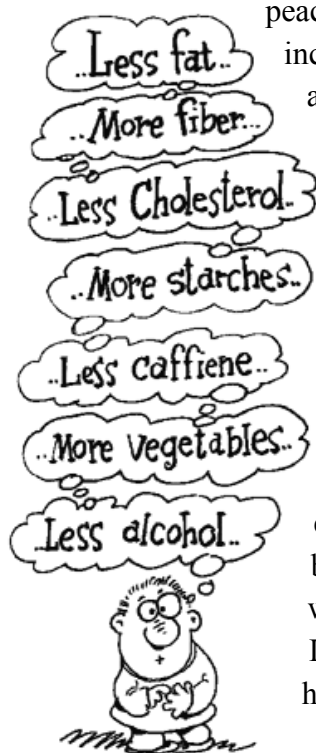 ..Less fat..
..More fiber...
..Less Cholesterol..
..More starches..
..Less caffiene..
..More Vegetables..
..Less alcohol..